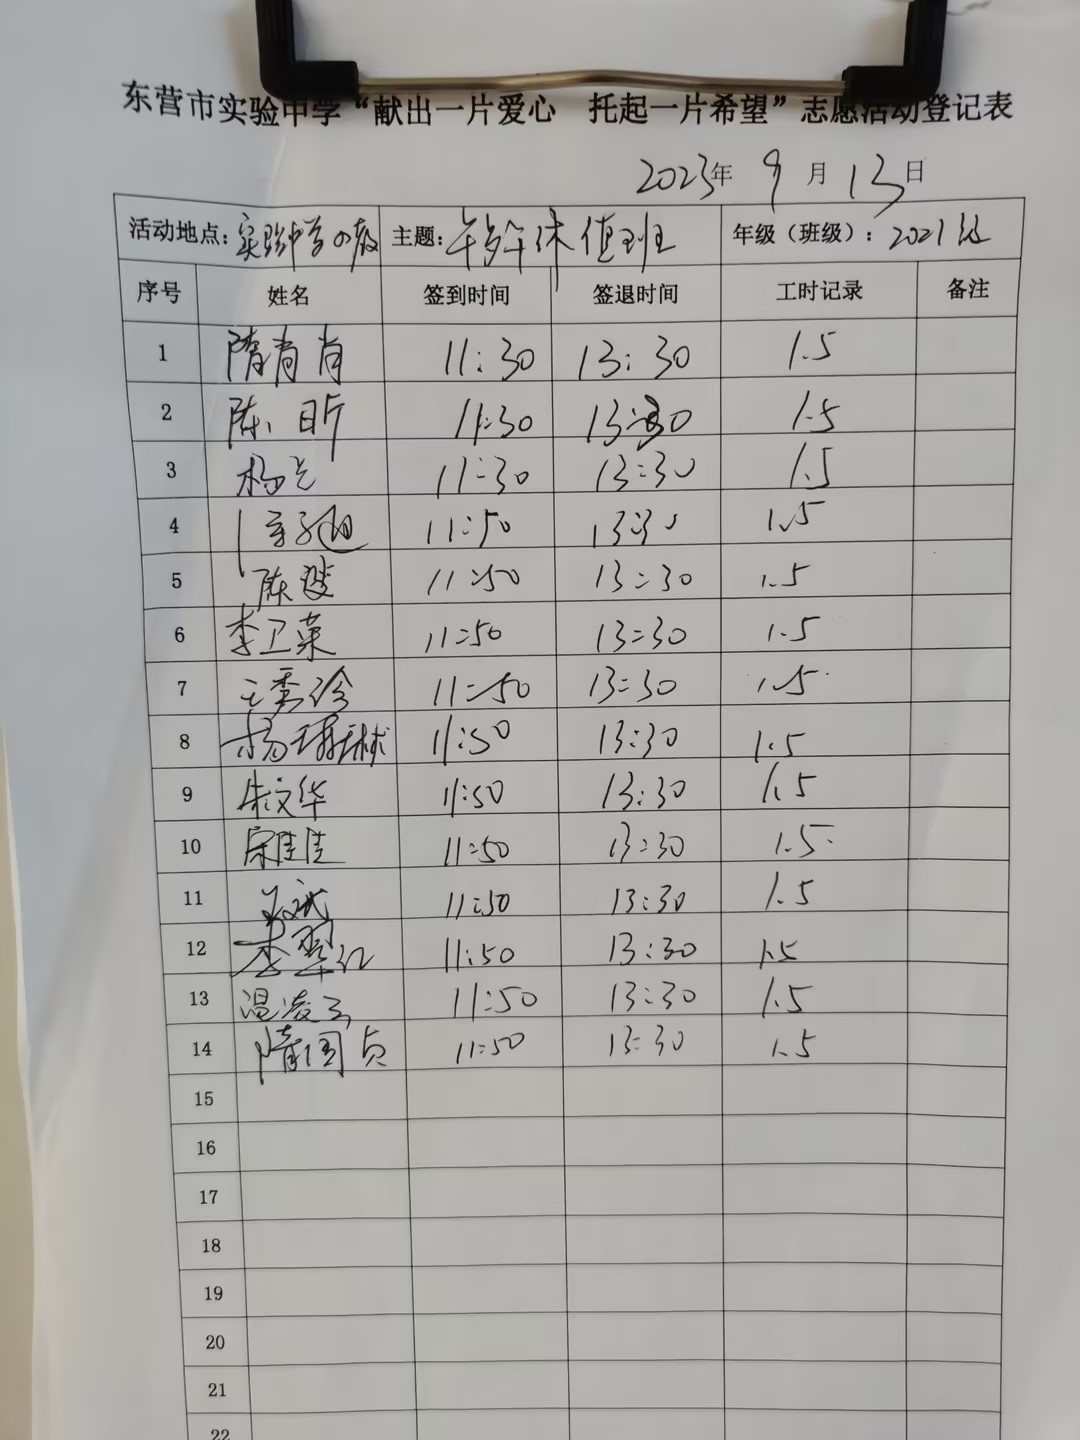 东营市实验中学“献出一片爱心 托起一片希望”志愿活动登记表
2023年 9月 13日
活动地点：实验中学 主题：午休值班 年级（班级）：2021级
序号 姓名 签到时间 签退时间 工时记录 备注
1 隋肖肖 11:30 13:30 1.5
2 陈昕 11:30 13:30 1.5
3 杨光 11:30 13:30 1.5
4 11:50 13:30 1.5
5 陈 11:50 13:30 1.5
6 李卫荣 11:50 13:30 1.5
7 王秀玲 11:50 13:30 1.5
8 杨 11:50 13:30 1.5
9 朱文华 11:50 13:30 1.5
10 宋佳佳 11:50 13:30 1.5
11 11:50 13:30 1.5
12 李翠红 11:50 13:30 1.5
13 温凌云 11:50 13:30 1.5
14 隋国贞 11:50 13:30 1.5
15
16
17
18
19
20
21
22